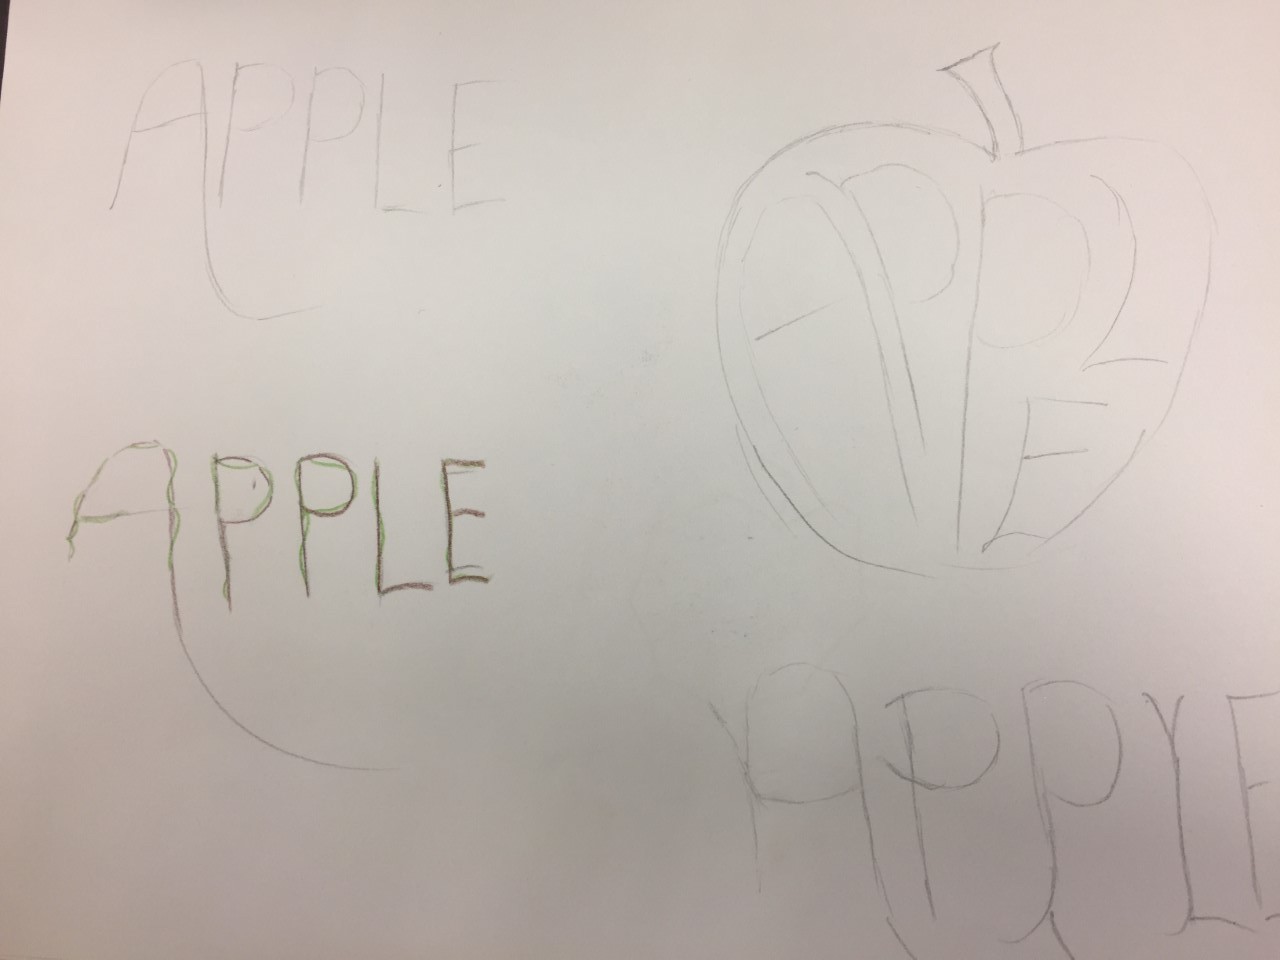 APPLE
APPLE
APPLE
APPLE